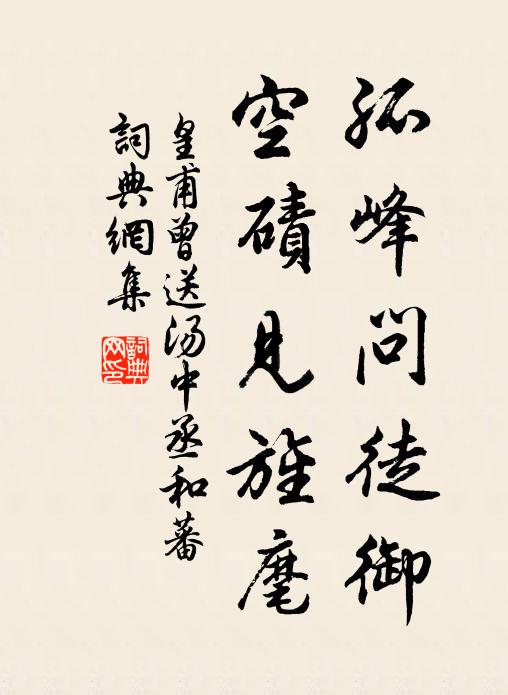 孤峰問徒御
空磧見旌麾
皇甫曾送汤中丞和蕃
詞典網集
詞典网印